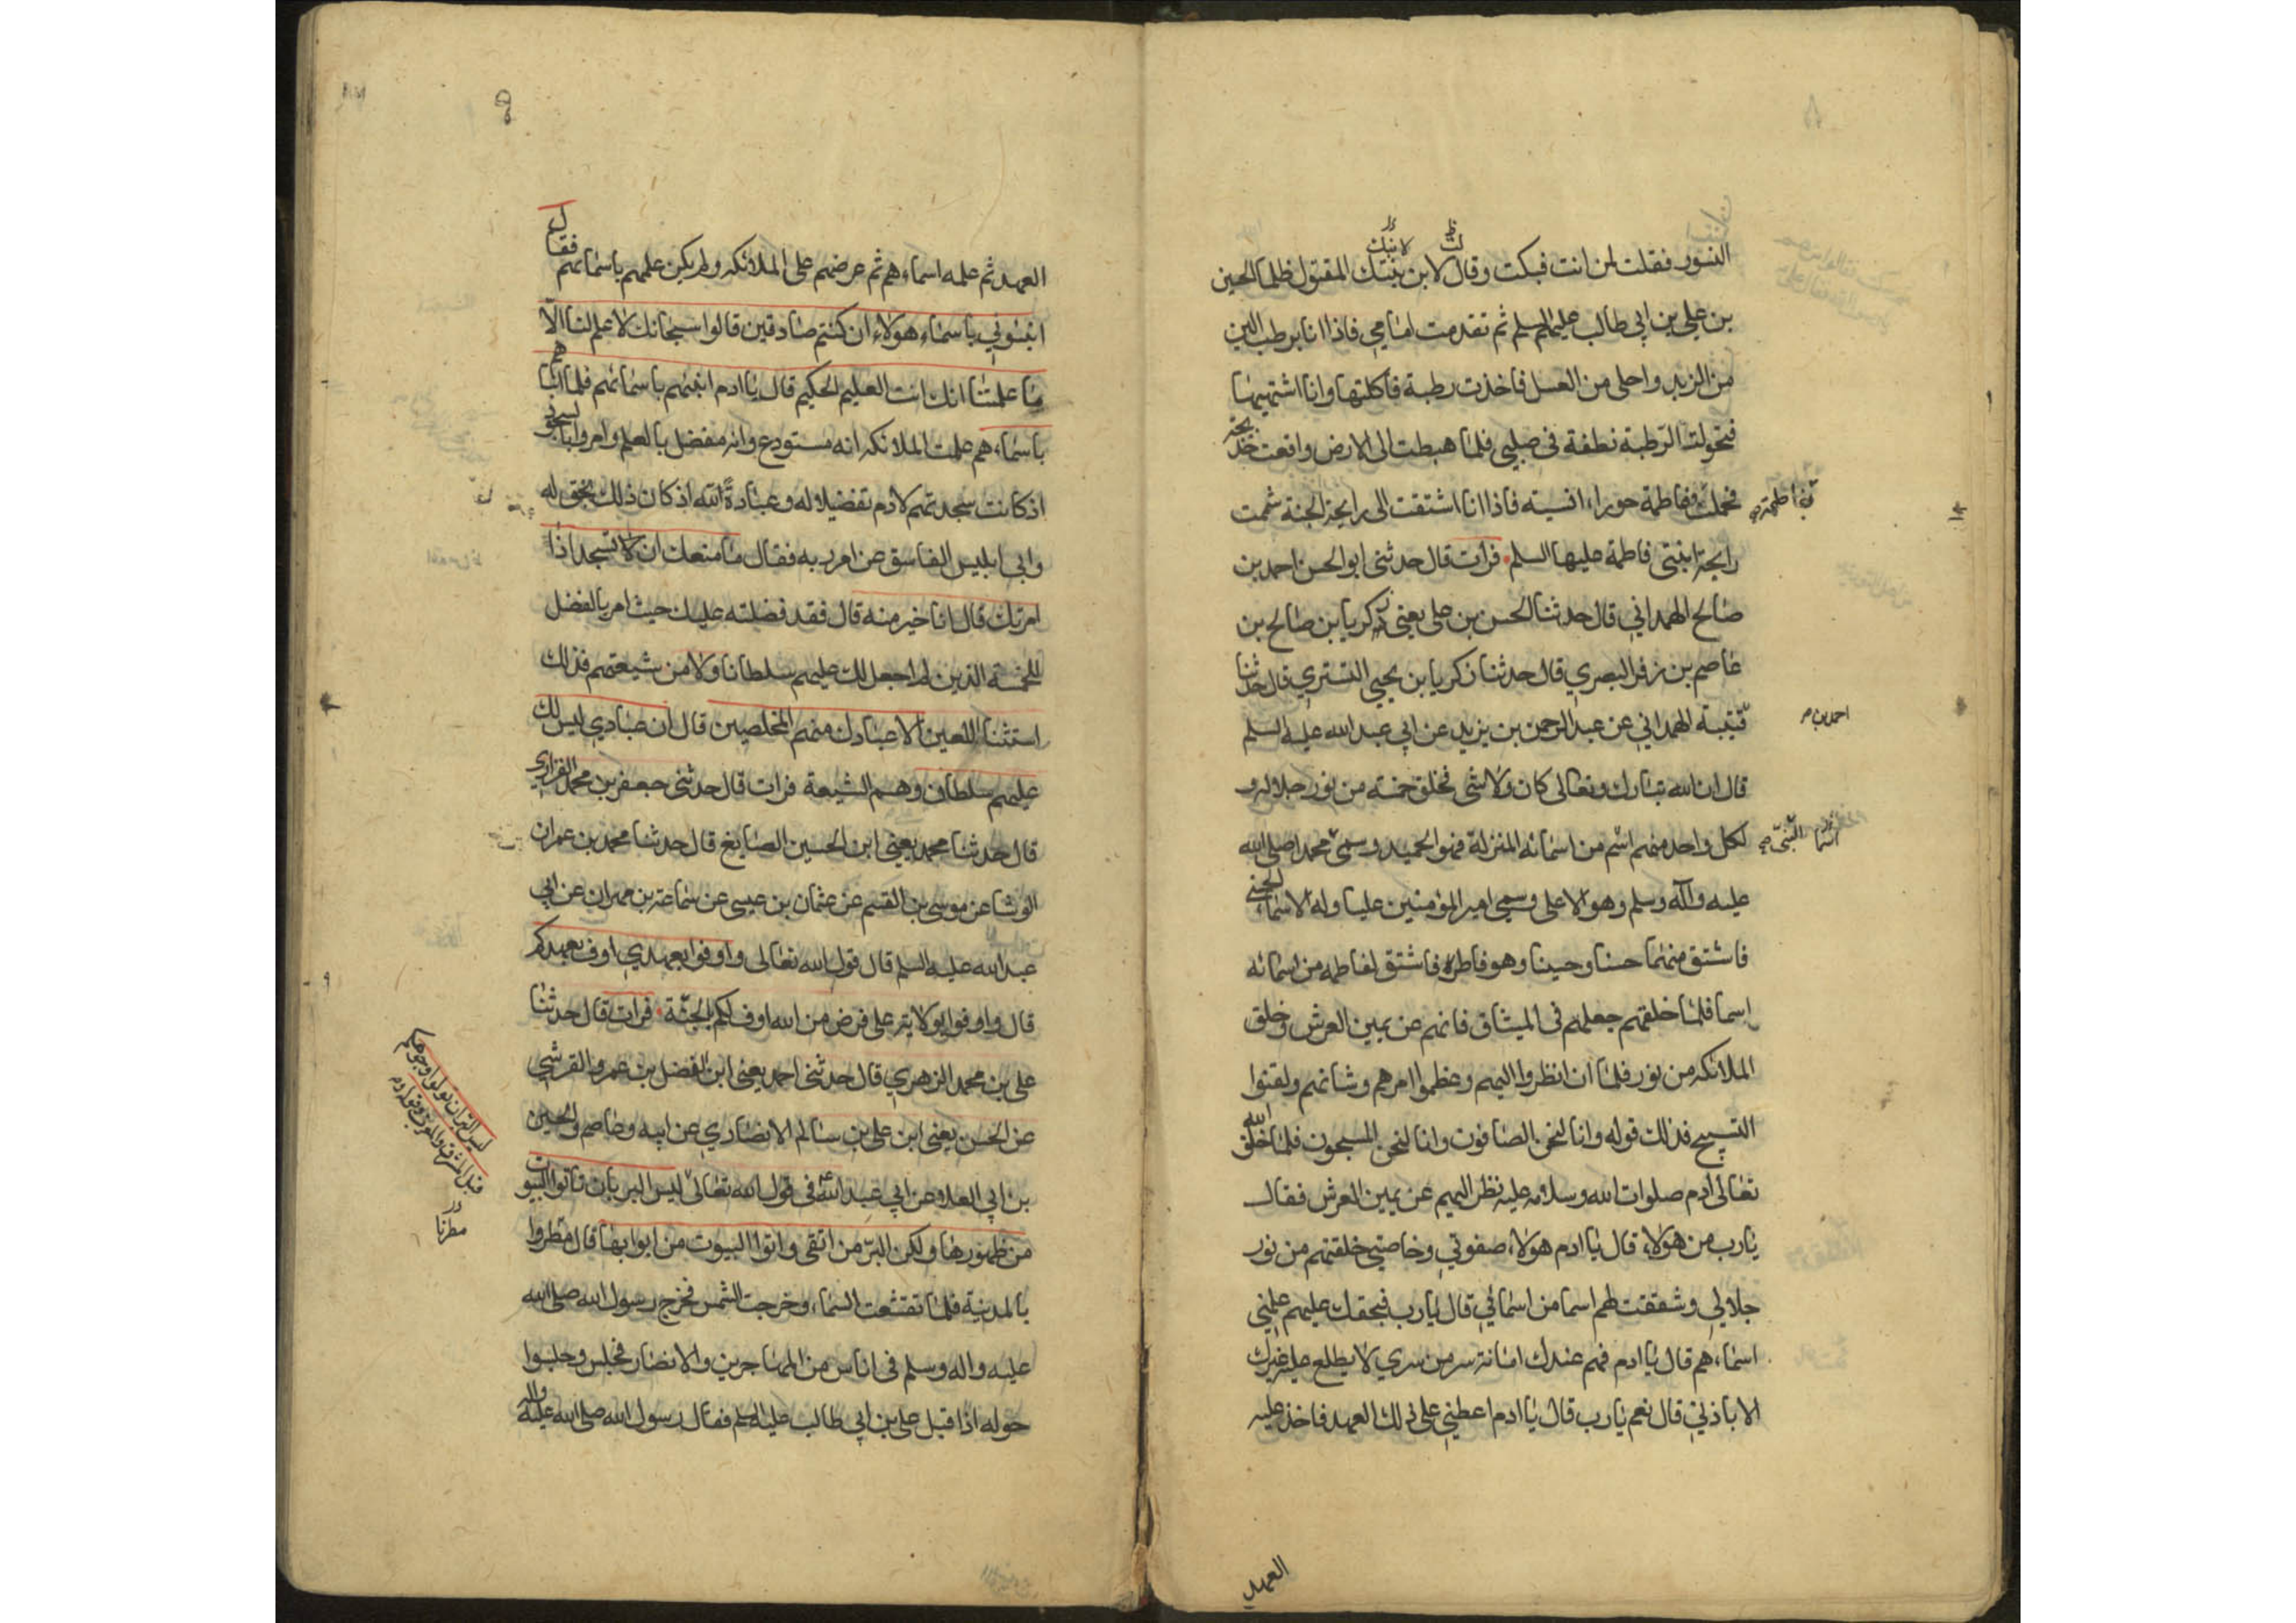 النور فقلت لمن انت فبكت وقال لابن بنتك المقتول ظلما الحسين
بن علي بن ابي طالب عليهم السلم ثم تقدمت امامي فاذا انا برطب الين
من الزبد واحلى من العسل فاخذت رطبة فاكلتها وانا اشتهيها
فتحولت الرطبة نطفة في صلبي فلما هبطت الى الارض واقعت خديجة
فحملت بفاطمة ففاطمة حوراء انسية فاذا انا اشتقت الى رايحة الجنة شممت
رايحة ابنتي فاطمة عليها السلم فرات قال حدثني ابو الحسن احمد بن
صالح الهمداني قال حدثنا الحسن بن علي يعني بن زكريا بن صالح بن
عاصم بن زفر البصري قال حدثنا زكريا بن يحيى التستري قال حدثنا
احمد بن قتيبة الهمداني عن عبد الرحمن بن يزيد عن ابي عبد الله عليه السلم
قال ان الله تبارك وتعالى كان ولا شي فخلق خمسة من نور جلاله و
لكل واحد منهم اسم من اسمائه المنزلة فهو الحميد وسمي محمدا صلى الله
عليه وآله وسلم وهو الاعلى وسمي امير المؤمنين عليا وله الاسماء الحسنى
فاشتق منهما حسنا وحسينا وهو فاطر فاشتق لفاطمه من اسمائه
اسما فلما خلقهم جعلهم في الميثاق فانهم عن يمين العرش وخلق
الملائكه من نور فلما ان انظروا اليهم وعظموا امرهم وشانهم ولقنوا
التسبيح فذلك قوله وانا لنحن الصافون وانا لنحن المسبحون فلما خلق الله
تعالى ادم صلوات الله وسلامه عليه نظر اليهم عن يمين العرش فقال
يا رب من هولاء قال يا ادم هولاء صفوتي وخاصتي خلقتهم من نور
جلالي وشققت لهم اسما من اسمائي قال يا رب فبحقك عليهم علمني
اسماءهم قال يا ادم فهم عندك امانة سر من سري لا يطلع عليه غيرك
الا باذني قال نعم يا رب قال يا ادم اعطني على ذلك العهد فاخذ عليه
العهد
العهد ثم علمه اسماءهم ثم عرضهم على الملائكه ولم يكن علمهم باسمائهم فقال
انبئوني باسماء هولاء ان كنتم صادقين قالوا سبحانك لا علم لنا الا
ما علمتنا انك انت العليم الحكيم قال يا ادم انبئهم باسمائهم فلما انباهم
باسماءهم علمت الملائكه انه مستودع وانه مفضل بالعلم وامروا بالسجود
اذ كانت سجدتهم لادم تفضيلا له وعبادة لله اذ كان ذلك بحق له
وابى ابليس الفاسق عن امر ربه فقال ما منعك ان لا تسجد اذ
امرتك قال انا خير منه قال فقد فضلته عليك حيث امر بالفضل
للخمسة الذين لم اجعل لك عليهم سلطانا ولا من شيعتهم فذلك
استثنا اللعين الا عبادك منهم المخلصين قال ان عبادي ليس لك
عليهم سلطان وهم الشيعة فرات قال حدثني جعفر بن محمد الفزاري
قال حدثنا محمد يعني ابن الحسين الصايغ قال حدثنا محمد بن عمران
الوشا عن موسى بن القسم عن عثمان بن عيسى عن سماعة بن مهران عن ابي
عبد الله عليه السلم قال قول الله تعالى واوفوا بعهدي اوف بعهدكم
قال واوفوا بولاية علي فرض من الله اوف لكم الجنة فرات قال حدثنا
علي بن محمد الزهري قال حدثني احمد يعني ابن الفضل بن عمرو القرشي
عن الحسن يعني ابن علي بن سالم الانصاري عن ابيه وعاصم والحسين
بن ابي العلا عن ابي عبد الله ع في قول الله تعالى ليس البر بان تاتوا البيوت
من ظهورها ولكن البر من اتقى واتوا البيوت من ابوابها قال مطروا
بالمدينة فلما تقشعت السماء وخرجت الشمس فخرج رسول الله صلى الله
عليه واله وسلم في اناس من المهاجرين والانصار فجلس وجلسوا
حوله اذ اقبل علي بن ابي طالب عليه السلم فقال رسول الله صلى الله عليه واله
ليس البر ان تولوا وجوهكم
قبل المشرق والمغرب
مطرنا